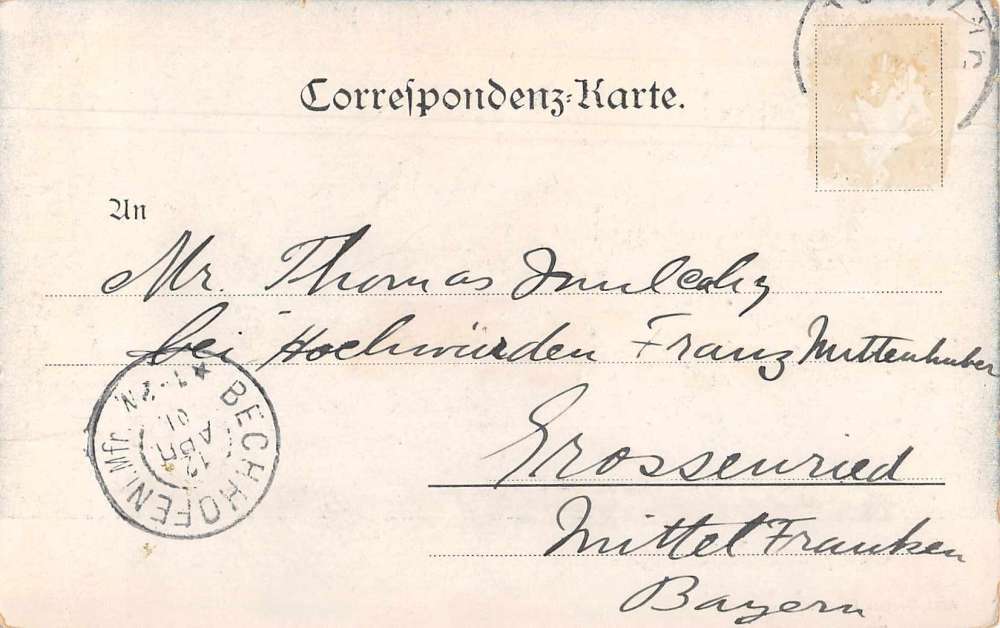 Correspondenz-Karte.
An
Mr. Thomas
bei Hochwürden Franz Mittenhuber
Grossenried
Mittel Franken
Bayern
BECHHOFEN Mfr.
12
APR.
01.
1-2N